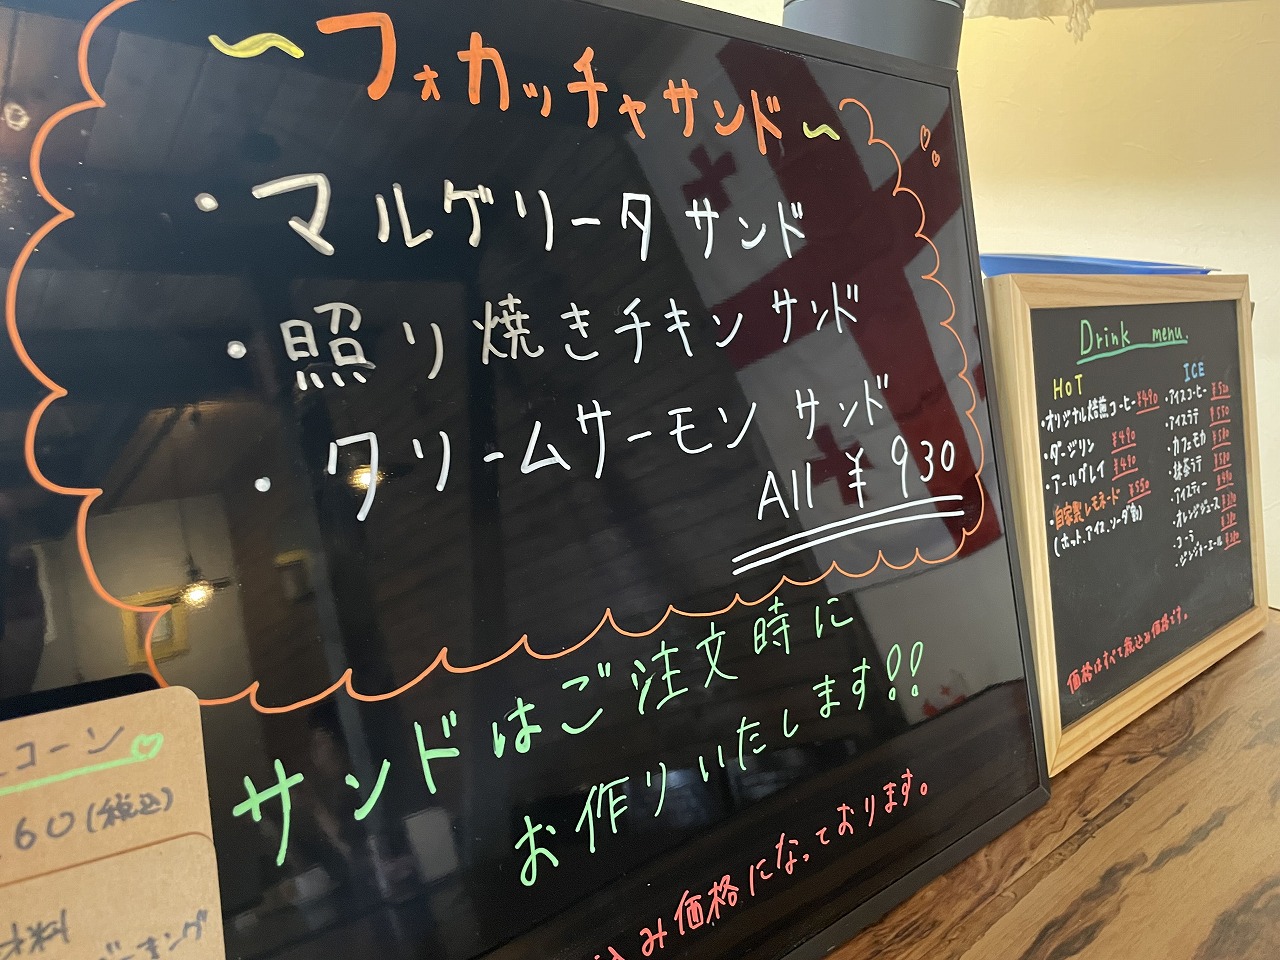 ~フォカッチャサンド~
・マルゲリータサンド
・照り焼きチキンサンド
・クリームサーモンサンド
All ¥930
サンドはご注文時に
お作りいたします!!
込み価格になっております。
コーン
60(税込)
材料
Drink menu.
HOT
・オリジナル焙煎コーヒー ¥490
・ダージリン ¥490
・アールグレイ ¥490
・自家製レモネード ¥550
(ホット、アイス、ソーダ割)
ICE
・アイスコーヒー ¥520
・アイスラテ ¥550
・カフェモカ ¥580
・抹茶ラテ ¥580
・アイスティー ¥490
・オレンジジュース
・コーラ
・ジンジャーエール
価格はすべて税込み価格です。